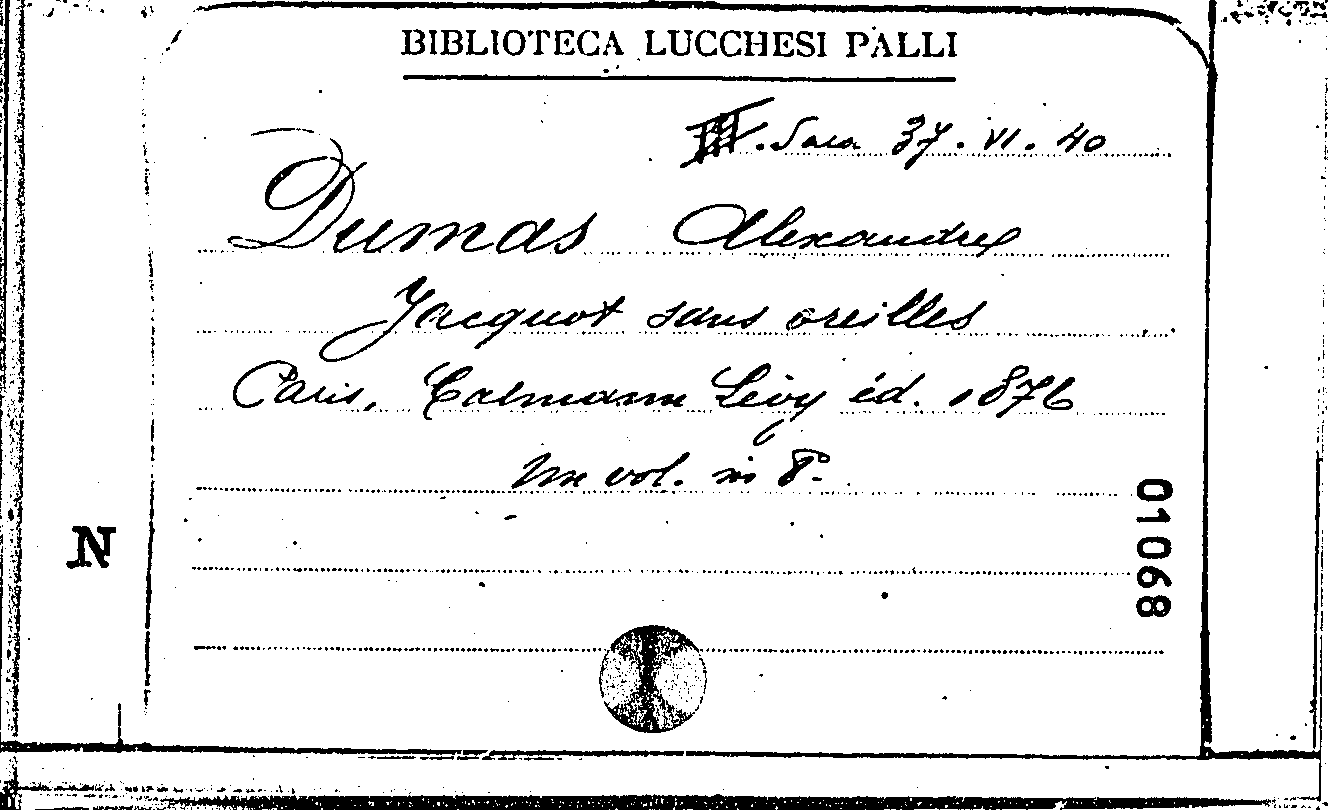 BIBLIOTECA LUCCHESI PALLI
III. Sala 37. VI. 40
Dumas Alexandre
Jacquot sans oreilles
Paris, Calmann Lévy éd. 1876
Un vol. in 8°.
N
01068